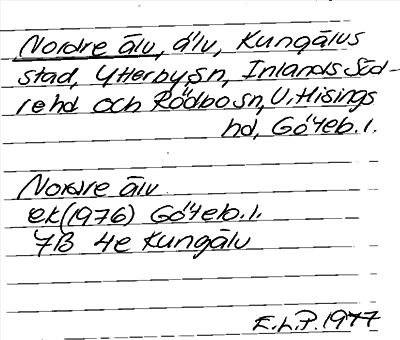 Nordre älv, älv, Kungälvs
stad, Ytterby sn, Inlands Söd-
re hd och Rödbo sn, V. Hisings
hd, Göteb. l.
Nordre älv
ek (1976) Göteb. l.
7B 4e Kungälv
E.L.P. 1977